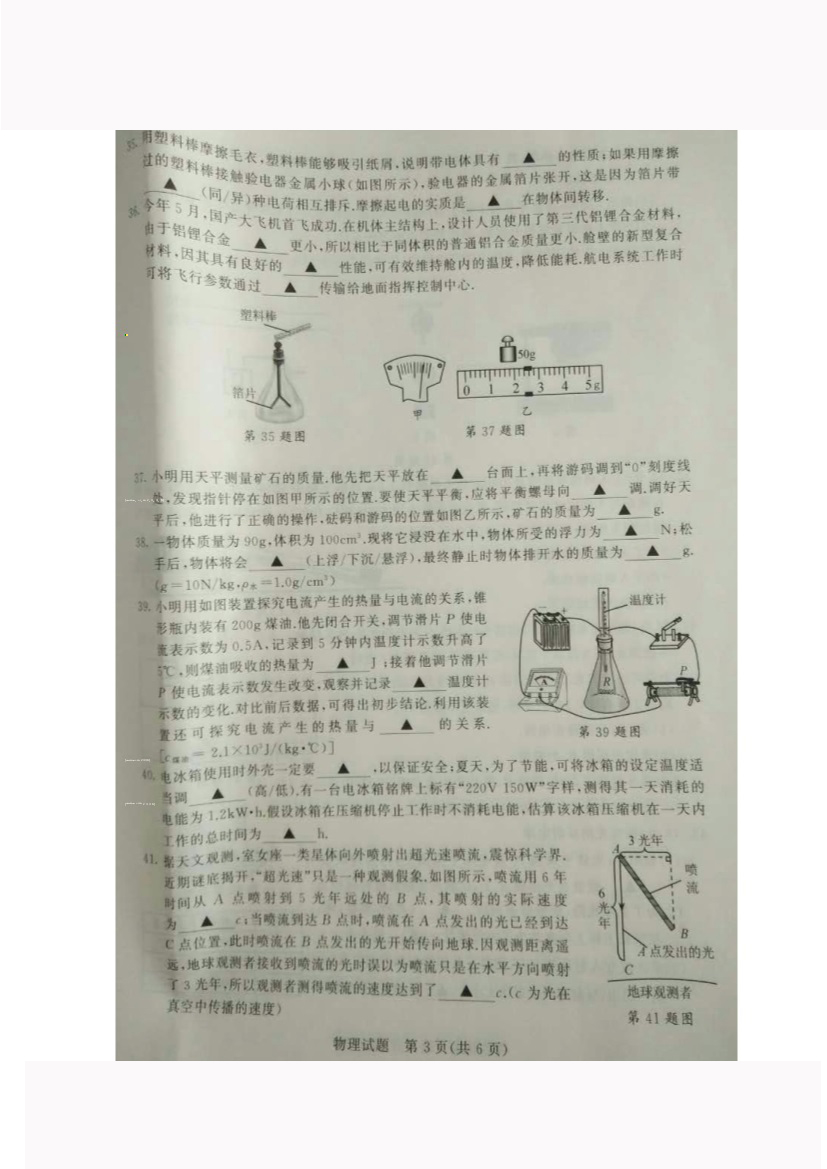 35. 用塑料棒摩擦毛衣,塑料棒能够吸引纸屑,说明带电体具有 ▲ 的性质;如果用摩擦
过的塑料棒接触验电器金属小球(如图所示),验电器的金属箔片张开,这是因为箔片带
▲ (同/异)种电荷相互排斥.摩擦起电的实质是 ▲ 在物体间转移.
36. 今年5月,国产大飞机首飞成功.在机体主结构上,设计人员使用了第三代铝锂合金材料,
由于铝锂合金 ▲ 更小,所以相比于同体积的普通铝合金质量更小.舱壁的新型复合
材料,因其具有良好的 ▲ 性能,可有效维持舱内的温度,降低能耗.航电系统工作时
可将飞行参数通过 ▲ 传输给地面指挥控制中心.
塑料棒
箔片
第 35 题图
甲
50g
0 1 2 3 4 5g
乙
第 37 题图
37. 小明用天平测量矿石的质量.他先把天平放在 ▲ 台面上,再将游码调到“0”刻度线
处,发现指针停在如图甲所示的位置.要使天平平衡,应将平衡螺母向 ▲ 调.调好天
平后,他进行了正确的操作,砝码和游码的位置如图乙所示,矿石的质量为 ▲ g.
38. 一物体质量为90g,体积为100cm³.现将它浸没在水中,物体所受的浮力为 ▲ N;松
手后,物体将会 ▲ (上浮/下沉/悬浮),最终静止时物体排开水的质量为 ▲ g.
(g=10N/kg,ρ水=1.0g/cm³)
39. 小明用如图装置探究电流产生的热量与电流的关系,锥
形瓶内装有200g煤油.他先闭合开关,调节滑片 P 使电
流表示数为0.5A,记录到5分钟内温度计示数升高了
5℃,则煤油吸收的热量为 ▲ J;接着他调节滑片
P 使电流表示数发生改变,观察并记录 ▲ 温度计
示数的变化.对比前后数据,可得出初步结论.利用该装
置还可探究电流产生的热量与 ▲ 的关系.
[c煤油=2.1×10³J/(kg·℃)]
温度计
- +
R
P
第 39 题图
40. 电冰箱使用时外壳一定要 ▲ ,以保证安全;夏天,为了节能,可将冰箱的设定温度适
当调 ▲ (高/低).有一台电冰箱铭牌上标有“220V 150W”字样,测得其一天消耗的
电能为1.2kW·h.假设冰箱在压缩机停止工作时不消耗电能,估算该冰箱压缩机在一天内
工作的总时间为 ▲ h.
41. 据天文观测,室女座一类星体向外喷射出超光速喷流,震惊科学界.
近期谜底揭开,“超光速”只是一种观测假象.如图所示,喷流用6年
时间从 A 点喷射到5光年远处的 B 点,其喷射的实际速度
为 ▲ c;当喷流到达 B 点时,喷流在 A 点发出的光已经到达
C 点位置,此时喷流在 B 点发出的光开始传向地球.因观测距离遥
远,地球观测者接收到喷流的光时误以为喷流只是在水平方向喷射
了3光年,所以观测者测得喷流的速度达到了 ▲ c.(c 为光在
真空中传播的速度)
3 光年
A
喷
流
6
光
年
B
A点发出的光
C
地球观测者
第 41 题图
物理试题 第3页(共6页)